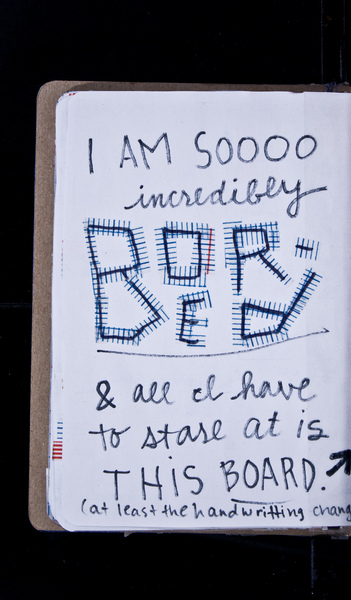 I AM SOOOO
incredibly
BOR-
ED
& all I have
to stare at is
THIS BOARD.
(at least the handwritting chang